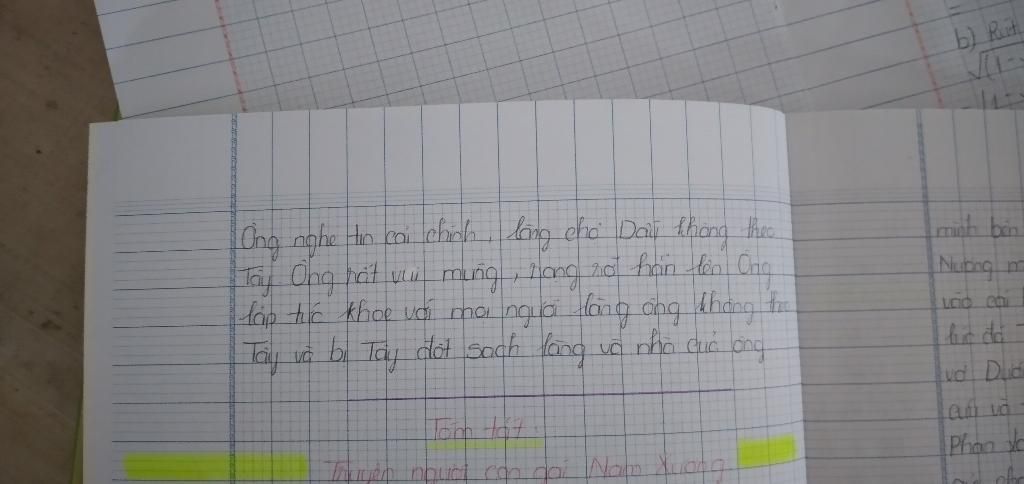 Ông nghe tin cải chính, làng chợ Dầu không theo
Tây Ông rất vui mừng, rạng rỡ hẳn lên Ông
lập tức khoe với mọi người làng ông không the
Tây và bị Tây đốt sạch làng và nhà của ông
Tóm tắt:
Truyện người con gái Nam Xương
b) Rút
minh bên
Nương m
vào cái
lúc đó
vợ
Phan